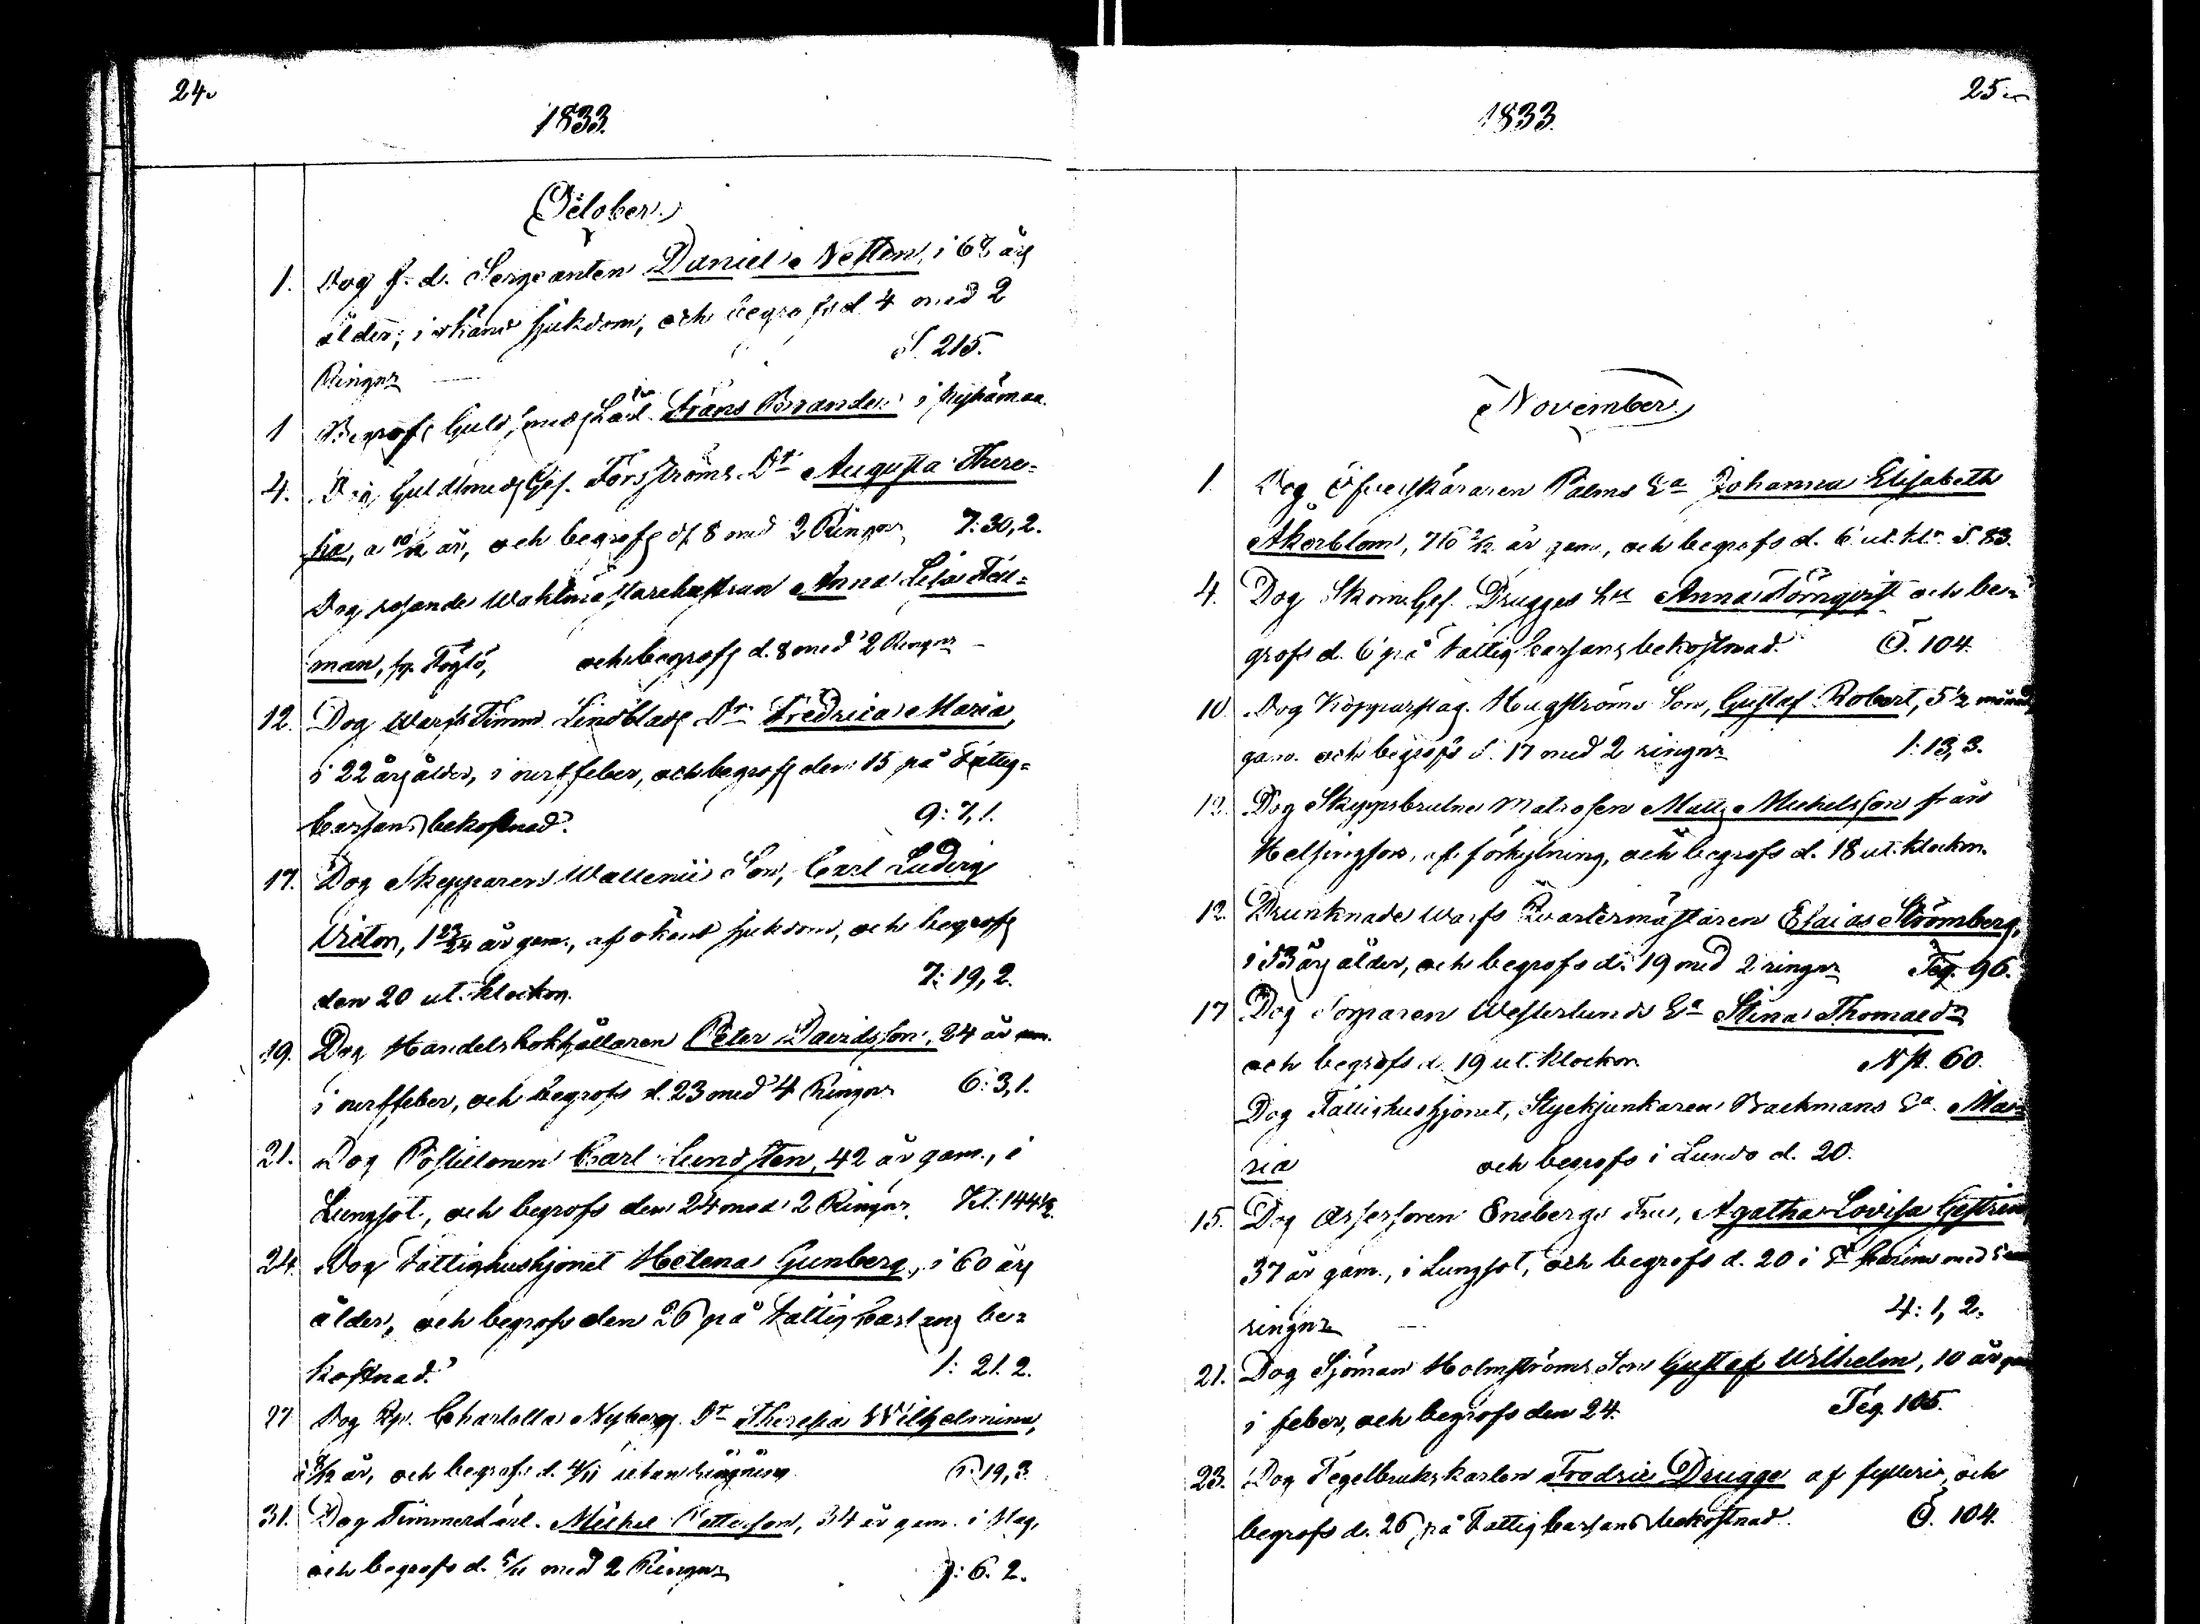 24.
1833.
October.
1. Dog f. d. Sergeanten Daniel Nessten, i 68 års
ålder, i okänd sjukdom, och begrofs d. 4 med 2
Ringnr S. 215.
1 Begrofs Guldsmeds Lärl. Frans Brander i Nykämaa.
4. Dog Guldsmeds Ges. Forsströms Dr Augusta There=
sia, a 10/12 år, och begrofs d. 8 med 2 Ringnr 7: 30, 2.
Dog resande Wahlmästarehustrun Anna Lisa Fell=
man, fr. Föglö, och begrofs d. 8 med 2 Ringnr
12. Dog Warfs Timm. Lindblads Dr Fredrica Maria,
i 22 års ålder, i nerffeber, och begrofs den 15 på Fattig=
Cassans bekostnad. 9: 7, 1.
17. Dog Skepparen Wallenii Son, Carl Ludvig
Victor, 1 23/24 år gam., af okänd sjukdom, och begrofs
den 20 ut. klockor. 7: 19, 2.
19. Dog Handelsbokhållaren Peter Davidsson, 24 år gam.
i nerffeber, och begrofs d. 23 med 4 Ringnr 6: 3, 1.
21. Dog Postillonen Carl Lundsten, 42 år gam., i
Lungsot, och begrofs den 24 med 2 Ringnr. Kl. 144½.
24. Dog Fattighushjonet Helena Gunberg, i 60 års
ålder, och begrofs den 26 på Fattig Cassans be=
kostnad. 1: 21. 2.
27 Dog Pig. Charlotta Nybergs Dr Theresia Wilhelmina,
a 8/12 år, och begrofs d. 4/11 utan ringning 19, 3.
31. Dog Timmerkarl. Michel Pettersson, 34 år gam. i slag,
och begrofs d. 5/11 med 2 Ringnr 7: 6. 2.
25.
1833.
November.
1. Dog Öfverskäraren Palms Ea Johanna Elisabeth
Åkerblom, 76 2/12 år gam., och begrofs d. 6 ut. klr. S. 83.
4. Dog Skom. Ges. Drugges hu Anna Törnqvist och be=
grofs d. 6 på Fattig Cassans bekostnad. Ö. 104.
10. Dog Kopparslag. Hugströms Son, Gustaf Robert, 5½ månad
gam. och begrofs d. 17 med 2 ringnr 1: 13, 3.
12. Dog Skeppsbrutne Matrosen Matts Michelsson från
Helsingfors, af förkylning, och begrofs d. 18 ut. klockor.
12. Drunknade Warfs Qvartermästaren Esaias Strömberg,
i 53 års ålder, och begrofs d. 19 med 2 ringnr Teg. 96.
17 Dog Torparen Westerlunds Ea Stina Thomaedr
och begrofs d. 19 ut. klockor. N st. 60.
Dog Fattighushjonet, Styckjunkaren Backmans Ea. Ma=
ria och begrofs i Lundo d. 20.
15. Dog Assessoren Enebergs Fru, Agatha Lovisa Gestrin
37 år gam., i Lungsot, och begrofs d. 20 i St Karins med
ringnr 4: 1, 2.
21. Dog Sjöman Holmströms Son Gustaf Wilhelm, 10 år gam
i feber, och begrofs den 24. Teg. 105.
23. Dog Tegelbrukskarlen Fredric Drugge af fylleri, och
begrofs d. 26 på Fattig Cassans bekostnad. Ö. 104.